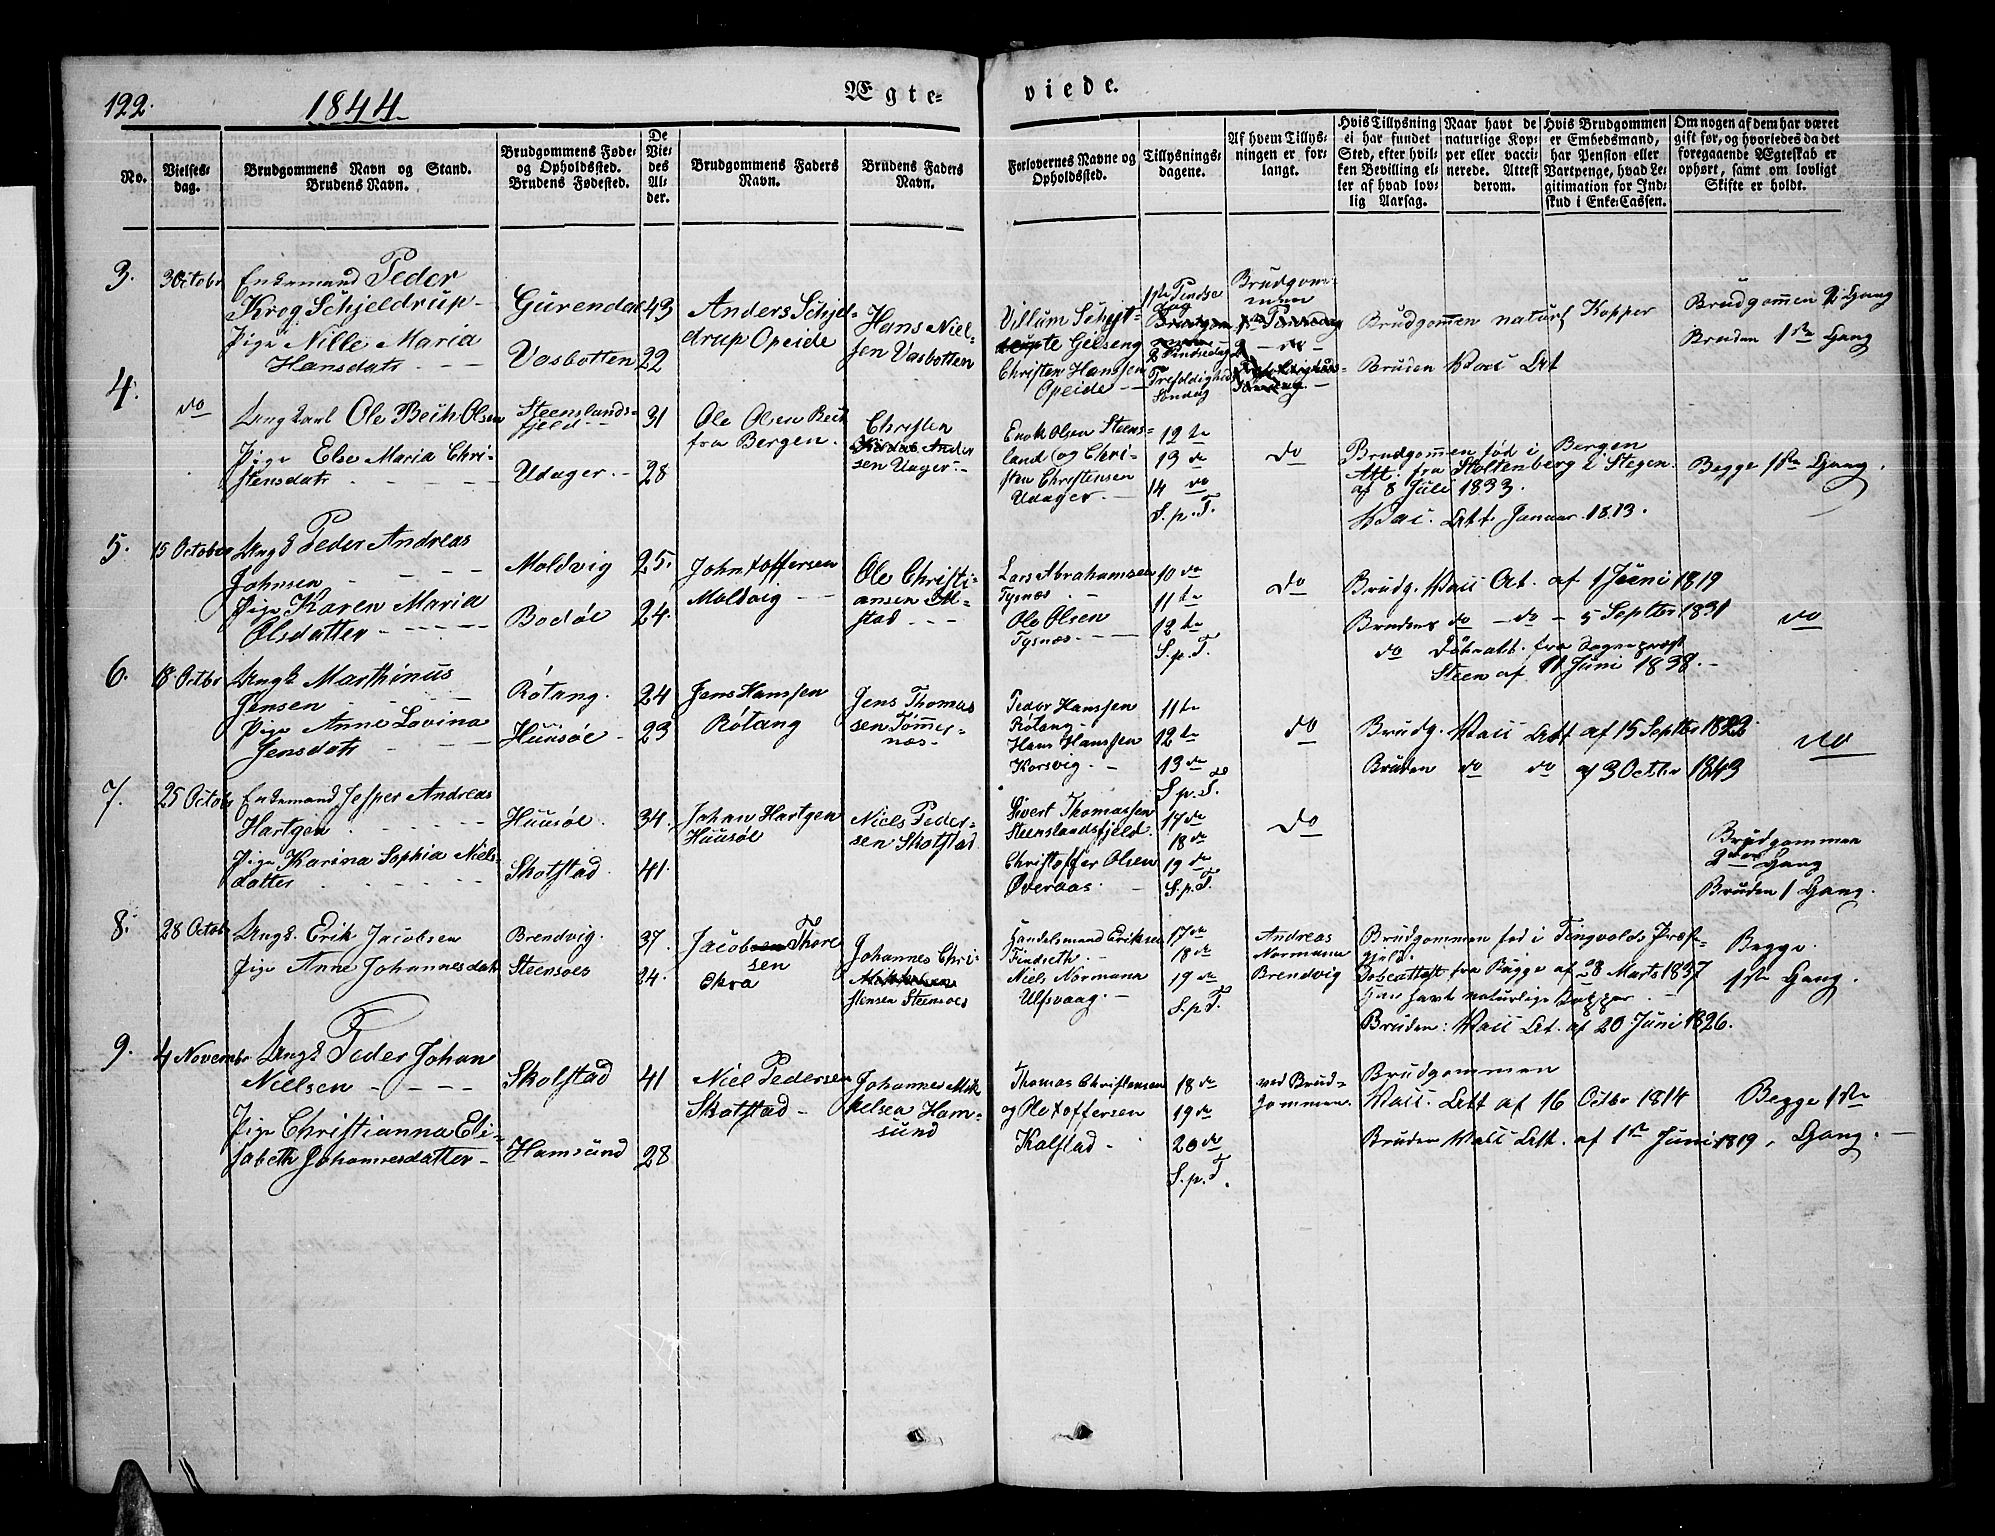 122.
1844
Ægte-
viede.
No.
Vielses-
dag.
Brudgommens Navn og Stand.
Brudens Navn.
Brudgommens Føde-
og Opholdssted.
Brudens Fødested.
De
Vie-
des
Al-
der.
Brudgommens Faders
Navn.
Brudens Faders
Navn.
Forlovernes Navne og
Opholdssted.
Tillysnings-
dagene.
Af hvem Tillys-
ningen er for-
langt.
Hvis Tillysning
ei har fundet
Sted, efter hvil-
ken Bevilling el-
ler af hvad lov-
lig Aarsag.
Naar havt de
naturlige Kop-
per eller vacci-
nerede. Attest
derom.
Hvis Brudgommen
er Embedsmand,
har Pension eller
Vartpenge, hvad Le-
gitimation for Ind-
skud i Enke-Cassen.
Om nogen af dem har været
gift før, og hvorledes da det
foregaaende Ægteskab er
ophørt, samt om lovligt
Skifte er holdt.
3.
3 Octobr
Enkemand Peder
Krog Schjeldrup
Pige Nille Maria
Hansdatr
Gurendal
Vasbotten
43
22
Anders Schjel-
drup Opeide
Hans Niel-
sen Vasbotten
Villum Schjet-
Christen Hanssen
Opeide
1ste Pindse
dag
2 Pindsedag
Trefoldigheds
Søndag
Brudgom-
men
Brudgommen naturl Kopper
Bruden Vacc Att
Brudgommen 2 Gang
Bruden 1ste Gang
4.
do
Ungkarl Ole Beck Olsen
Pige Else Maria Chri-
stensdatr
Steenslands-
fjeld
Udager
31
28
Ole Olsen Beck
fra Bergen.
Christen
Ander
sen Uager
Enok Olsen Steens-
land og Chri-
sten Christensen
Udager
12te
13 de
14 do
S. p. T.
do
Brudgommen fød i Bergen
Att. fra Stoltenberg i Stegen
af 8 Juli 1833.
Vac. Att. Januar 1813.
Begge 1ste Gang.
5.
15 October
Ungk Peder Andreas
Johnsen
Pige Karen Maria
Olsdatter
Moldvig
Bodøe
25.
24.
John Xoffersen
Moldvig
Ole Christi-
ansen
stad
Lars Abrahamsen
Tysnæs
Ole Olsen
Tysnæs
10 de
11 te
12 te
S. p. T.
do
Brudg. Vacc At. af 1 Juni 1819
Bruden do do 5 Septbr 1831
do Døbeatt. fra Sognepræst
Steen af 11 Juni 1838.
do
6.
18 Octbr
Ungk Marthinus
Jensen
Pige Anne Lovina
Jensdatr
Røtang.
Huusøe
24
23
Jens Hanssen
Røtang
Jens Thomas
sen Tømmer-
næs
Peder Hanssen
Røtang
Hans Hanssen
Korsvig
11 te
12 te
13 de
S. p. T.
do
Brudg. Vacc Att af 15 Septbr
Bruden do do af 3 Octbr 1843
do
7.
25 Octobr
Enkemand Jesper Andreas
Hartgen
Pige Karina Sophia Niels-
datter
Huusøe.
Skotstad
34.
41.
Johan Hartgen
Huusøe
Niels Peder-
sen Skotstad
Sivert Thomassen
Steenslandsfjeld
Christoffer Olsen
Overaas
17 de
18 de
19 de
S. p. T.
do
Brudgommen
2den Gang
Bruden 1 Gang.
8.
28 Octobr
Ungk. Erik Jacobsen
Pige Anne Johannesdatr
Brendvig.
Steensoes
37.
24.
Jacob Thore
sen
Johannes Chri-
stensen Steensoes
Handelsmand Eriksen
Niels Normann
Ulfsvaag.
17 de
18 de
19 de
S. p. T.
Andreas
Normann
Brendvig
Brudgommen fød i Tingvolds Præste-
gjeld.
Døbeattest fra Bugge af 28 Marts 1837
Han havt naturlige Kopper.
Bruden: Vacc At. af 20 Juni 1826.
Begge
1ste Gang.
9.
4 Novembr
Ungk Peder Johan
Nielsen
Pige Christianna Eli-
sabeth Johannesdatter
Skotstad
Hamsund
41
28
Niel Pedersen
Skotstad
Johannes Mik
kelsen Ham-
sund
Thomas Christensen
og Ole Xoffersen
Kalstad
18 de
19 de
20 de
S. p. T.
ved Brud-
gommen
Brudgommen
Vacc. Att af 16 Octbr 1814
Bruden Vacc Att. af 1ste Juni 1819.
Begge 1ste
Gang.